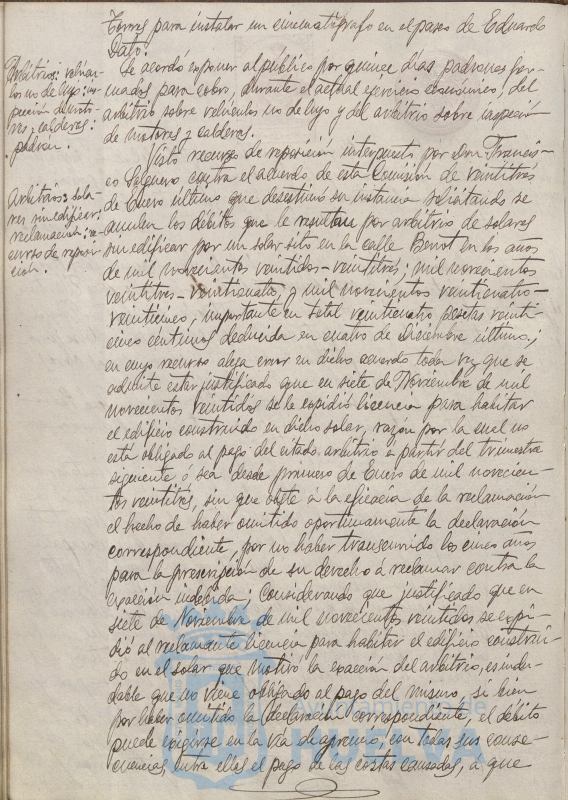 Torres para instalar un cinematógrafo en el paseo de Eduardo
Dato.
Arbitrios: vehícu-
los no de lujo: ins-
pección de moto-
res y calderas:
padrón.
Se acordó exponer al público por quince días padrones for-
mados para cobro, durante el actual ejercicio económico, del
arbitrio sobre vehículos no de lujo y del arbitrio sobre inspección
de motores y calderas.
Arbitrios: sola-
res sin edificar;
reclamación; re-
curso de reposi-
ción.
Visto recurso de reposición interpuesto por Don Francis-
co Salguero contra el acuerdo de esta Comisión de veintitres
de Enero último que desestimó su instancia solicitando se
anulen los débitos que le resultan por arbitrio de solares
sin edificar por un solar sito en la calle Benot en los años
de mil novecientos veintidos-veintitres; mil novecientos
veintitres-veinticuatro, y mil novecientos veinticuatro-
veinticinco, importante en total veinticuatro pesetas veinti-
cinco centimos deducida en cuatro de Diciembre último;
en cuyo recurso alega error en dicho acuerdo toda vez que se
admite estar justificado que en siete de Noviembre de mil
novecientos veintidos se le expidió licencia para habitar
el edificio construido en dicho solar, razón por la cual no
está obligado al pago del citado arbitrio a partir del trimestre
siguiente ó sea desde primero de Enero de mil novecien-
tos veintitres, sin que obste a la eficacia de la reclamación
el hecho de haber omitido oportunamente la declaración
correspondiente, por no haber transcurrido los cinco años
para la prescripción de su derecho á reclamar contra la
exacción indebida; Considerando que justificado que en
siete de Noviembre de mil novecientos veintidos se expi-
dió al reclamante licencia para habitar el edificio construi-
do en el solar que motivó la exacción del arbitrio, es indu-
dable que no viene obligado al pago del mismo, si bien
por haber omitido la declaración correspondiente, el débito
puede exigirse en la vía de apremio, con todas sus conse-
cuencias, entre ellas el pago de las costas causadas, á que
Ayuntamiento de
HUELVA